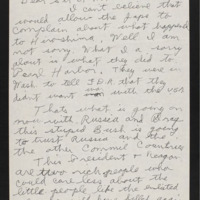 I can't believe that
would allow the Japs to
complain about what happened
to Hiroshima. Well I am
not sorry. What I a sorry
about is what they did to
Pearl Harbor. They were in
Wash to tell F.D.R that they
didn't want war with the USA
Thats what is going on
now with Russia and
this stupid Bush is going
to trust Russia and the
the other Commie Countries
This President + Reagan
are two rich people who
could care less about the
little people like the enlisted